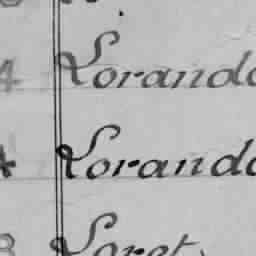 4 Lorando
* Lorando
8 Loret,